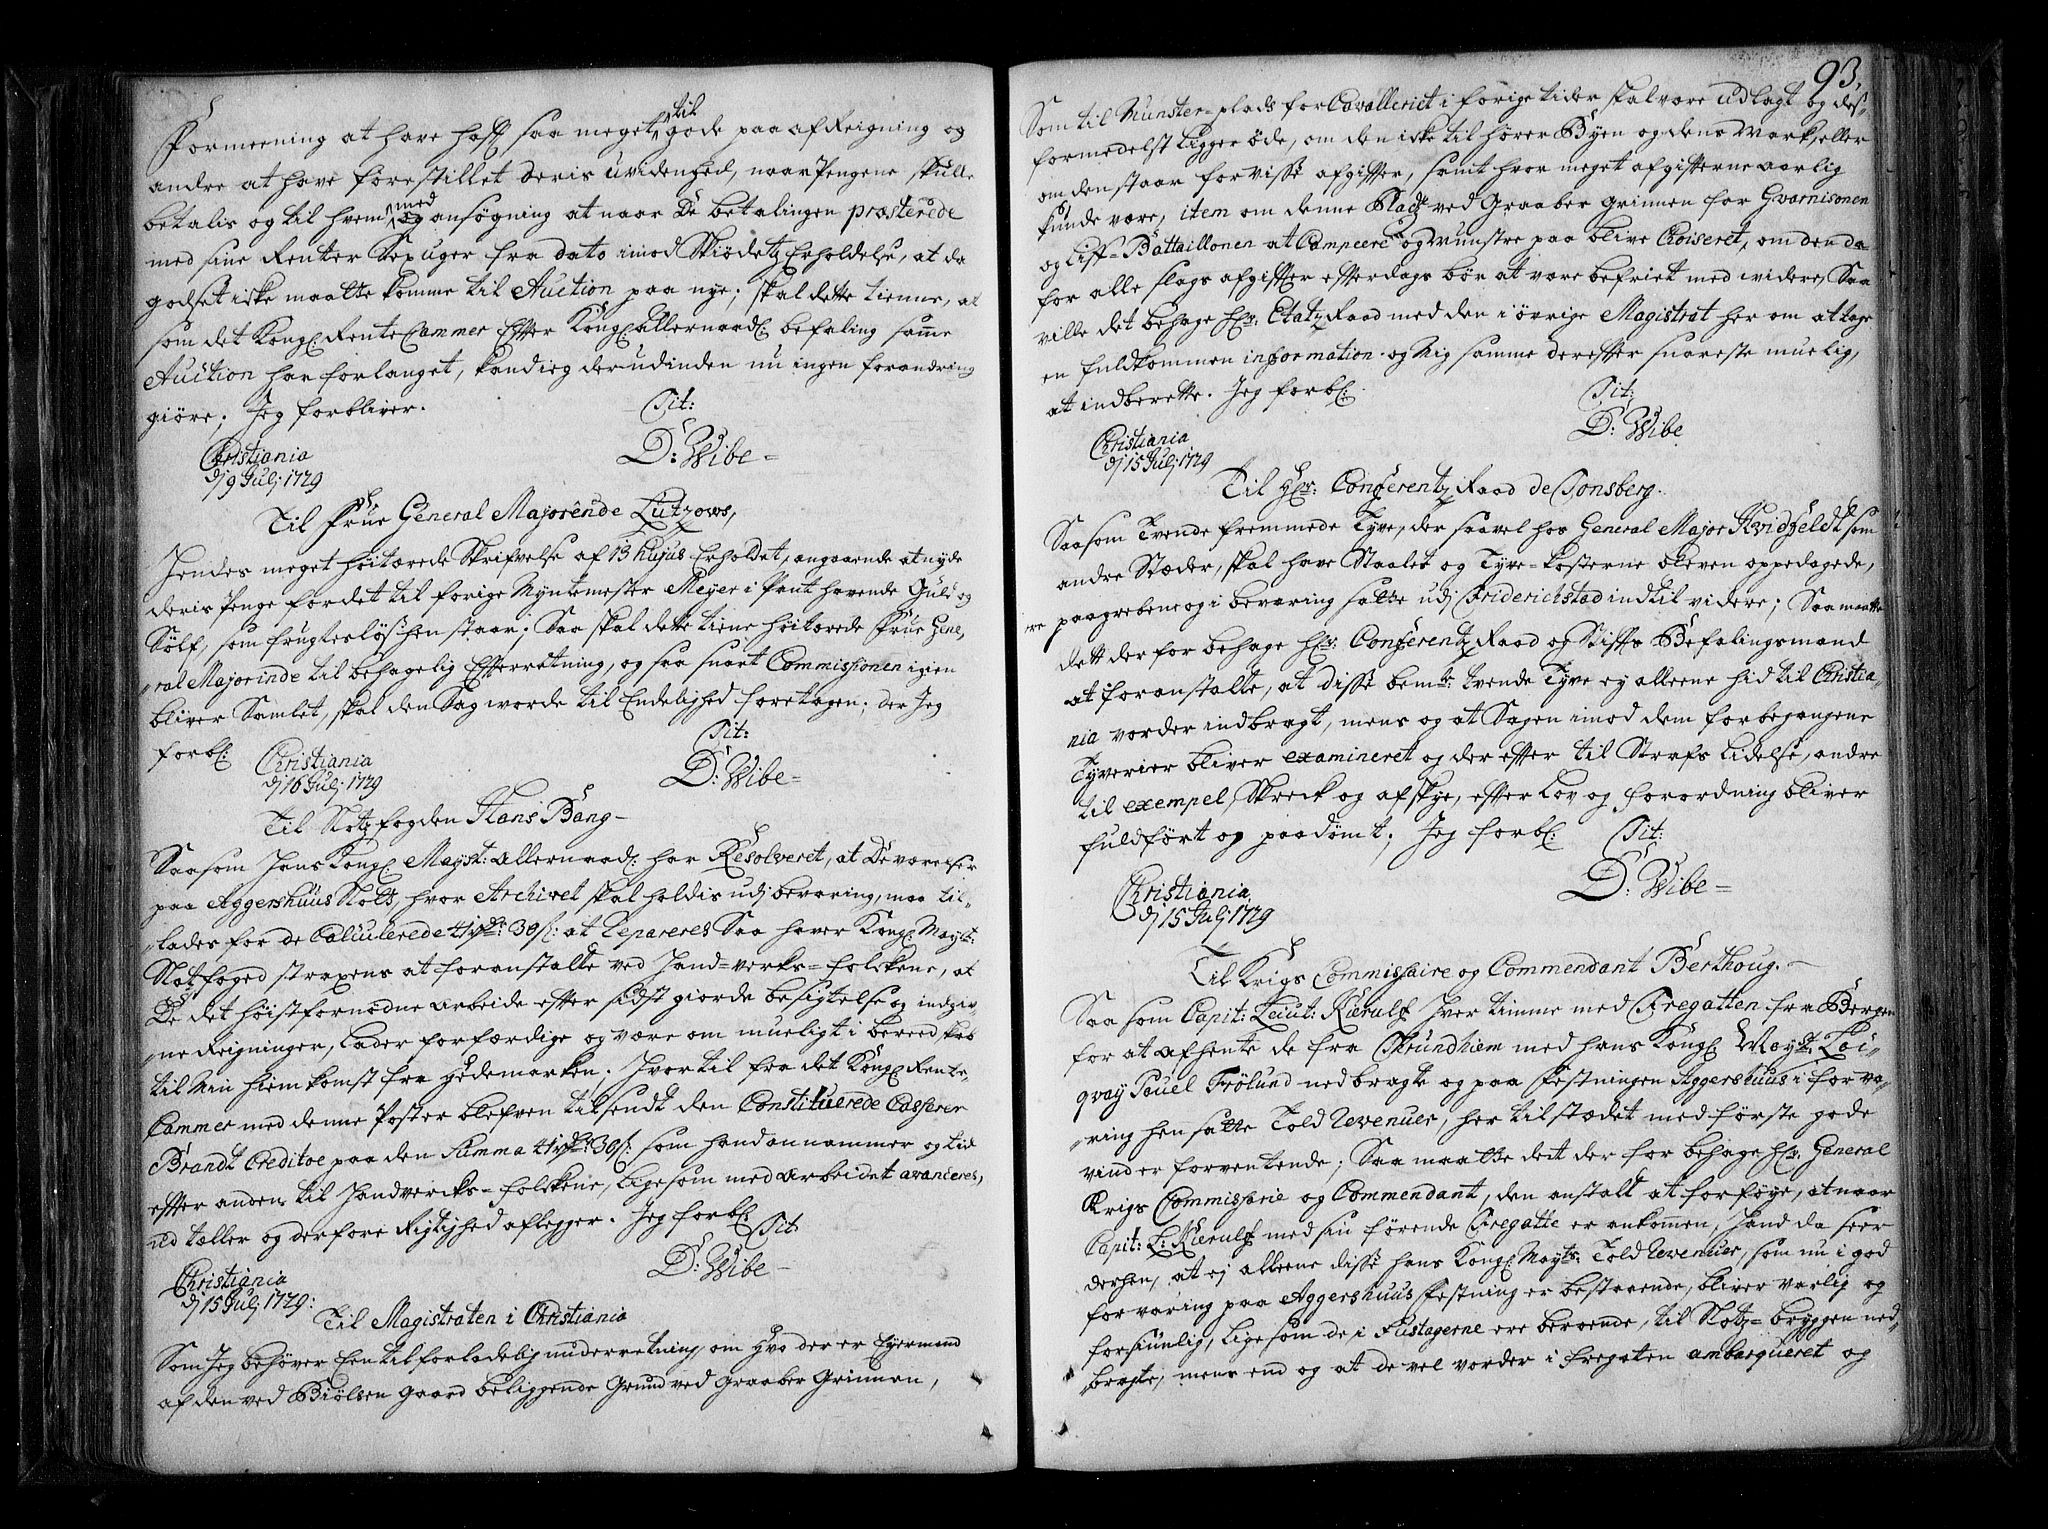 Formeening at have hos saa meget til gode paa afReigning og
andre at have forestillet deris uvidenhed, naar Pengene skulle
betalis og til hvem med og ansøgning at naar De betalingen præsterede
med sine Renter Sex uger fra dato imod Skiødetz Erholdelse, at da
godset icke maatte komme til Auction paa nye; skal dette tienne, at
som det Kongl: RenteCammer Effter Kongl: allernaadl: befaling samme
Auction har forlanget, kand ieg derudinden nu ingen forandring
giøre; Jeg forbliver.
Tit:
Christiania
dj 9 Julj 1729
D: Wibe
Til Frue General Majorinde Lützows,
Hendes meget höitærede Skrifvelse af 13 hujus Erholdet, angaaende at nyde
deris Penge for det til forige Myntemester Meyer i Pant havende Guld og
Sölf, som frugtesløs hen staar; Saa skal dette tiene höitærede Frue Gene„
„ral Majorinde til behagelig Efterretning, og saa snart Commissionen igien
bliver Samlet, skal den Sag worde til Endelighed foretagen; der Jeg
forbl:
Tit:
Christiania
dj 16 Julj 1729
D: Wibe
Til Slotz fogden Hans Bang
Saasom Hans Kongl: Mayst: allernaadl: har Resolveret, at De værelser
paa Aggershuus Slott, hvor Archivet skal holdis udj bevaring, maa til„
„lades for de Calculerede 41 rdr: 30 s: at repareres Saa haver Kongl: Mayts:
Slotfoged straxens at foranstalte ved Hand=verks=folckene, at
De det höistfornødne arbeide efter sidst giorde besigtelse og indgiv„
„ne Reigninger, lader forfærdige og være om mueligt i bereedskab
til Min hiemkomst fra Hedemarken. Hvortil fra det Kongl: Rente„
Cammer med denne Poster blefven tilsendt den Constituerede Casserer
Brandt Creditoe paa den Summa 41 rdr: 30 s: som hand annammer og tid
efter anden til Handvercks=folckene, ligesom med arbeidet avanceres,
ud tæller og derfore Rigtighed aflegger. Jeg forbl:
Tit
D: Wibe
Christiania
dj 15 Julj 1729:
Til Magistraten i Christiania
Som Jeg behøver Een tilforladelig underretning, om Hvo der er Eyermand
af den ved Biölsen gaard beliggende Grund ved Graaber Grinnen,
93.
Som til Munster=plads for Cavalleriet i forige tider skal være udlagt og des„
formedelst ligger øde, om den icke til hører Byen og dens Mark, eller
om den staar for visse afgifter, samt hvor meget afgifterne aarlig
kunde være, item om denne Pladz ved Graaber grinnen for Gvarnisonen
og Liff=Battaillonen at Campeere og Munstre paa blive Choiseret, om den da
for alle slags afgifter effterdags bør at være befriet med widere, Saa
ville det behage Hr: EtatzRaad med den i øvrige Magistrat her om at tage
en fuldkommen information og Mig samme derefter snareste muelig,
at indberette. Jeg forbl:
Tit:
D: Wibe
Christiania
dj 15 Julj 1729
Til Hr: Conferentz Raad de Tonsberg.
Saasom Tvende fremmede Tyve, der saavel hos General Major Hvidfeldt som
andre Stæder, skal have Staalet og Tyve=kosterne bleven oppedagede,
ere paagrebene og i bevaring satte udj Friderichstad indtil videre; Saa maatte
dett der for behage Hr: Conferentz Raad og Stiffts Befalingsmand
at foranstalte, at disse bemte: tvende Tyve ey alleene hid til Christia„
nia vorder indbragt, mens og at Sagen imod dem forbegangene
Tyverier bliver examineret og der efter til Strafs Lidelse, andre
til exempel, Skreck og afskye, efter Lov og forordning bliver
fuldført og paadømt; Jeg forbl:
Tit:
D: Wibe
Christiania
dj 15 Julj 1729
Til Krigs Commissaire og Commendant Berthoug.
Saa som Capit: Leiut: Kierulf hver timme med Fregatten fra Bergen
for at afhente de fra Thrundhiem med hans Kongl: Mayts: Loi„
qvay Pouel Frölund nedbragte og paa Festningen Aggershuus i forva„
„ring hensatte Told Revenuer, her til stædet med første gode
vind er forventende; Saa maatte dett der for behage Hr: General
Krigs Commissarie og Commendant, den anstalt at forføye, at naar
Capit: L: Kierulf med sin førende Fregatte er ankommen, hand da seer
derhen, at ej alleene disse hans Kongl: Mayts: Told Revenuer, som nu i god
forvaring paa Aggershuus Festning er bestaaende, bliver varlig og
forsiunlig, lige som de i Fustagerne ere beroende, til Slotz=bryggen ned„
„bragte, mens end og at de vel vorder i fregaten ambarqueret og